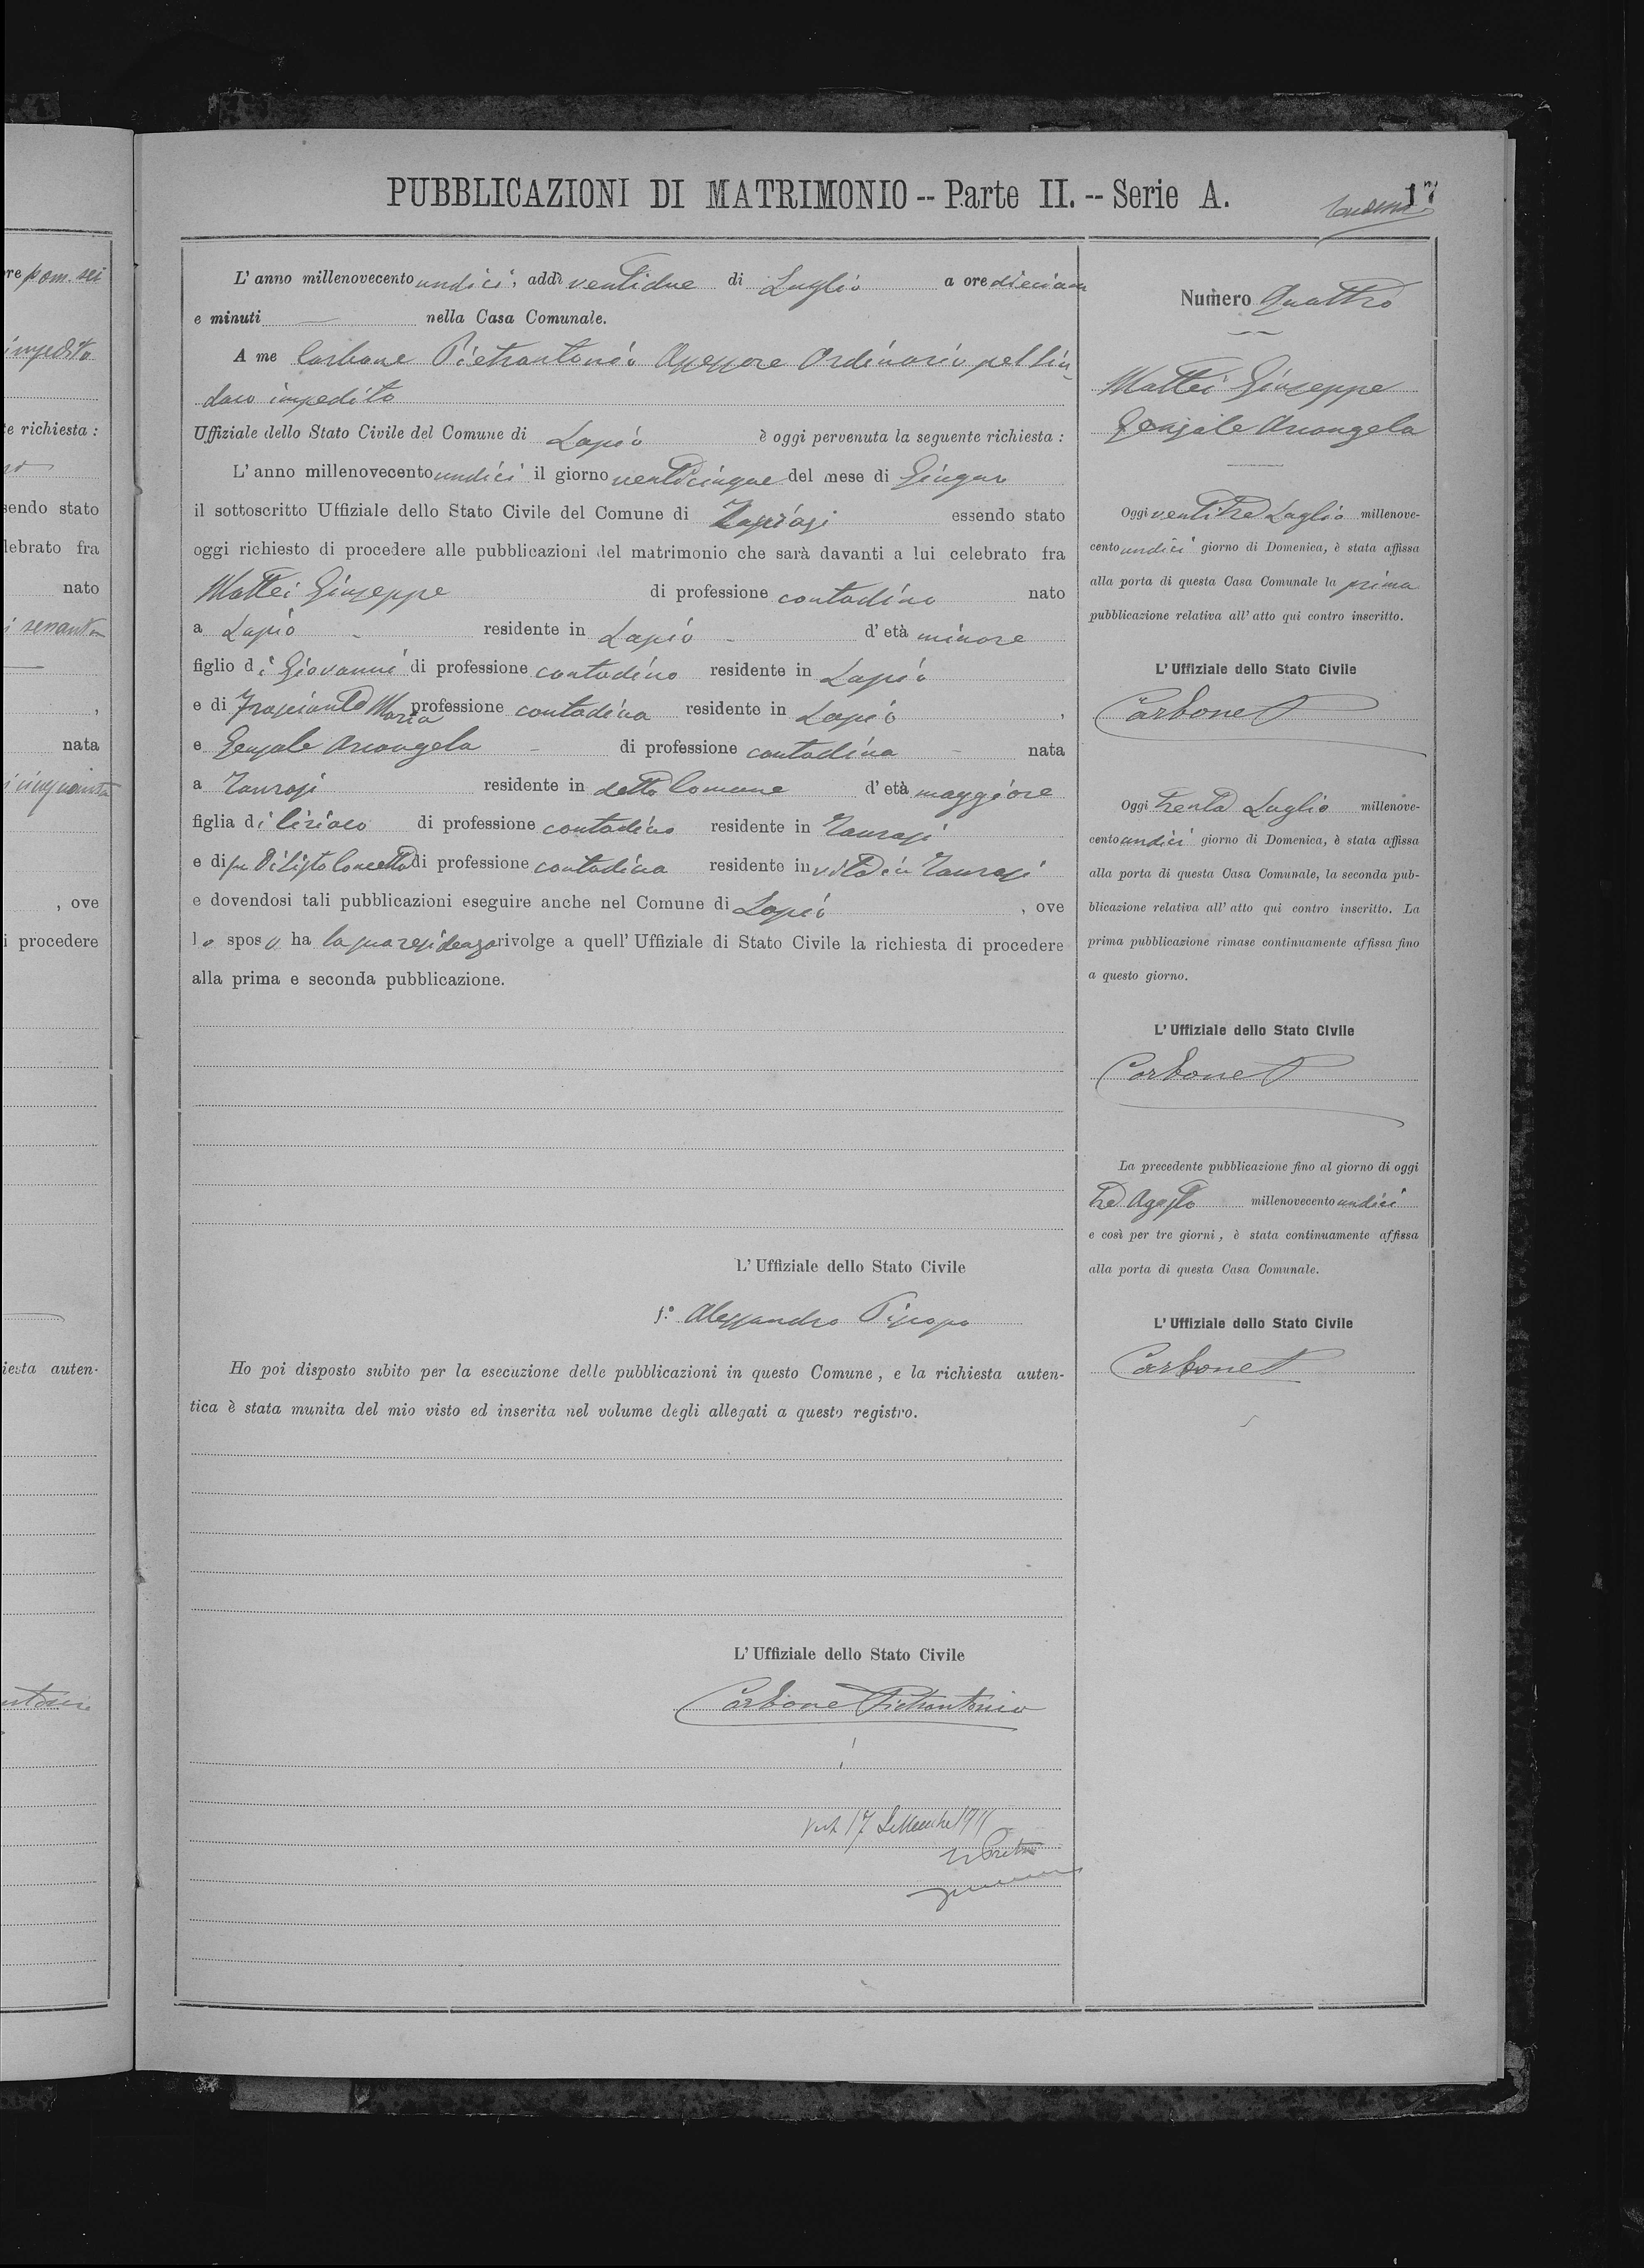 re pom. sei
impedito
te richiesta :
sendo stato
lebrato fra
nato
,
nata
, ove
i procedere
iesta auten-
PUBBLICAZIONI DI MATRIMONIO -- Parte II. -- Serie A.
17
L' anno millenovecento undici, addì ventidue di Luglio a ore dieci am
e minuti — nella Casa Comunale.
A me Carbone Pietrantonio Assessore Ordinario pel Sin-
daco impedito
Uffiziale dello Stato Civile del Comune di Lapio è oggi pervenuta la seguente richiesta :
L' anno millenovecento undici il giorno venticinque del mese di Giugno
il sottoscritto Uffiziale dello Stato Civile del Comune di essendo stato
oggi richiesto di procedere alle pubblicazioni del matrimonio che sarà davanti a lui celebrato fra
Mattei Giuseppe di professione contadino nato
a Lapio - residente in Lapio - d' età minore
figlio di Giovanni di professione contadino residente in Lapio
e di Maria professione contadina residente in Lapio ,
e Genzale Arcangela - di professione contadina - nata
a Taurasi residente in detto Comune d' età maggiore
figlia di Ciriaco di professione contadino residente in Taurasi
e di fu Concetta di professione contadina residente in vita in Taurasi
e dovendosi tali pubblicazioni eseguire anche nel Comune di Lapio , ove
lo sposo ha la sua residenza rivolge a quell' Uffiziale di Stato Civile la richiesta di procedere
alla prima e seconda pubblicazione.
L' Uffiziale dello Stato Civile
f.º Alessandro Pisapo
Ho poi disposto subito per la esecuzione delle pubblicazioni in questo Comune, e la richiesta auten-
tica è stata munita del mio visto ed inserita nel volume degli allegati a questo registro.
L' Uffiziale dello Stato Civile
Carbone Pietrantonio
17 Settembre 1911
Numero Quattro
Mattei Giuseppe
Genzale Arcangela
Oggi ventitre Luglio millenove-
cento undici giorno di Domenica, è stata affissa
alla porta di questa Casa Comunale la prima
pubblicazione relativa all' atto qui contro inscritto.
L' Uffiziale dello Stato Civile
Carbone P
Oggi trenta Luglio millenove-
cento undici giorno di Domenica, è stata affissa
alla porta di questa Casa Comunale, la seconda pub-
blicazione relativa all' atto qui contro inscritto. La
prima pubblicazione rimase continuamente affissa fino
a questo giorno.
L' Uffiziale dello Stato Civile
Carbone P
La precedente pubblicazione fino al giorno di oggi
tre Agosto millenovecento undici
e così per tre giorni, è stata continuamente affissa
alla porta di questa Casa Comunale.
L' Uffiziale dello Stato Civile
Carbone P